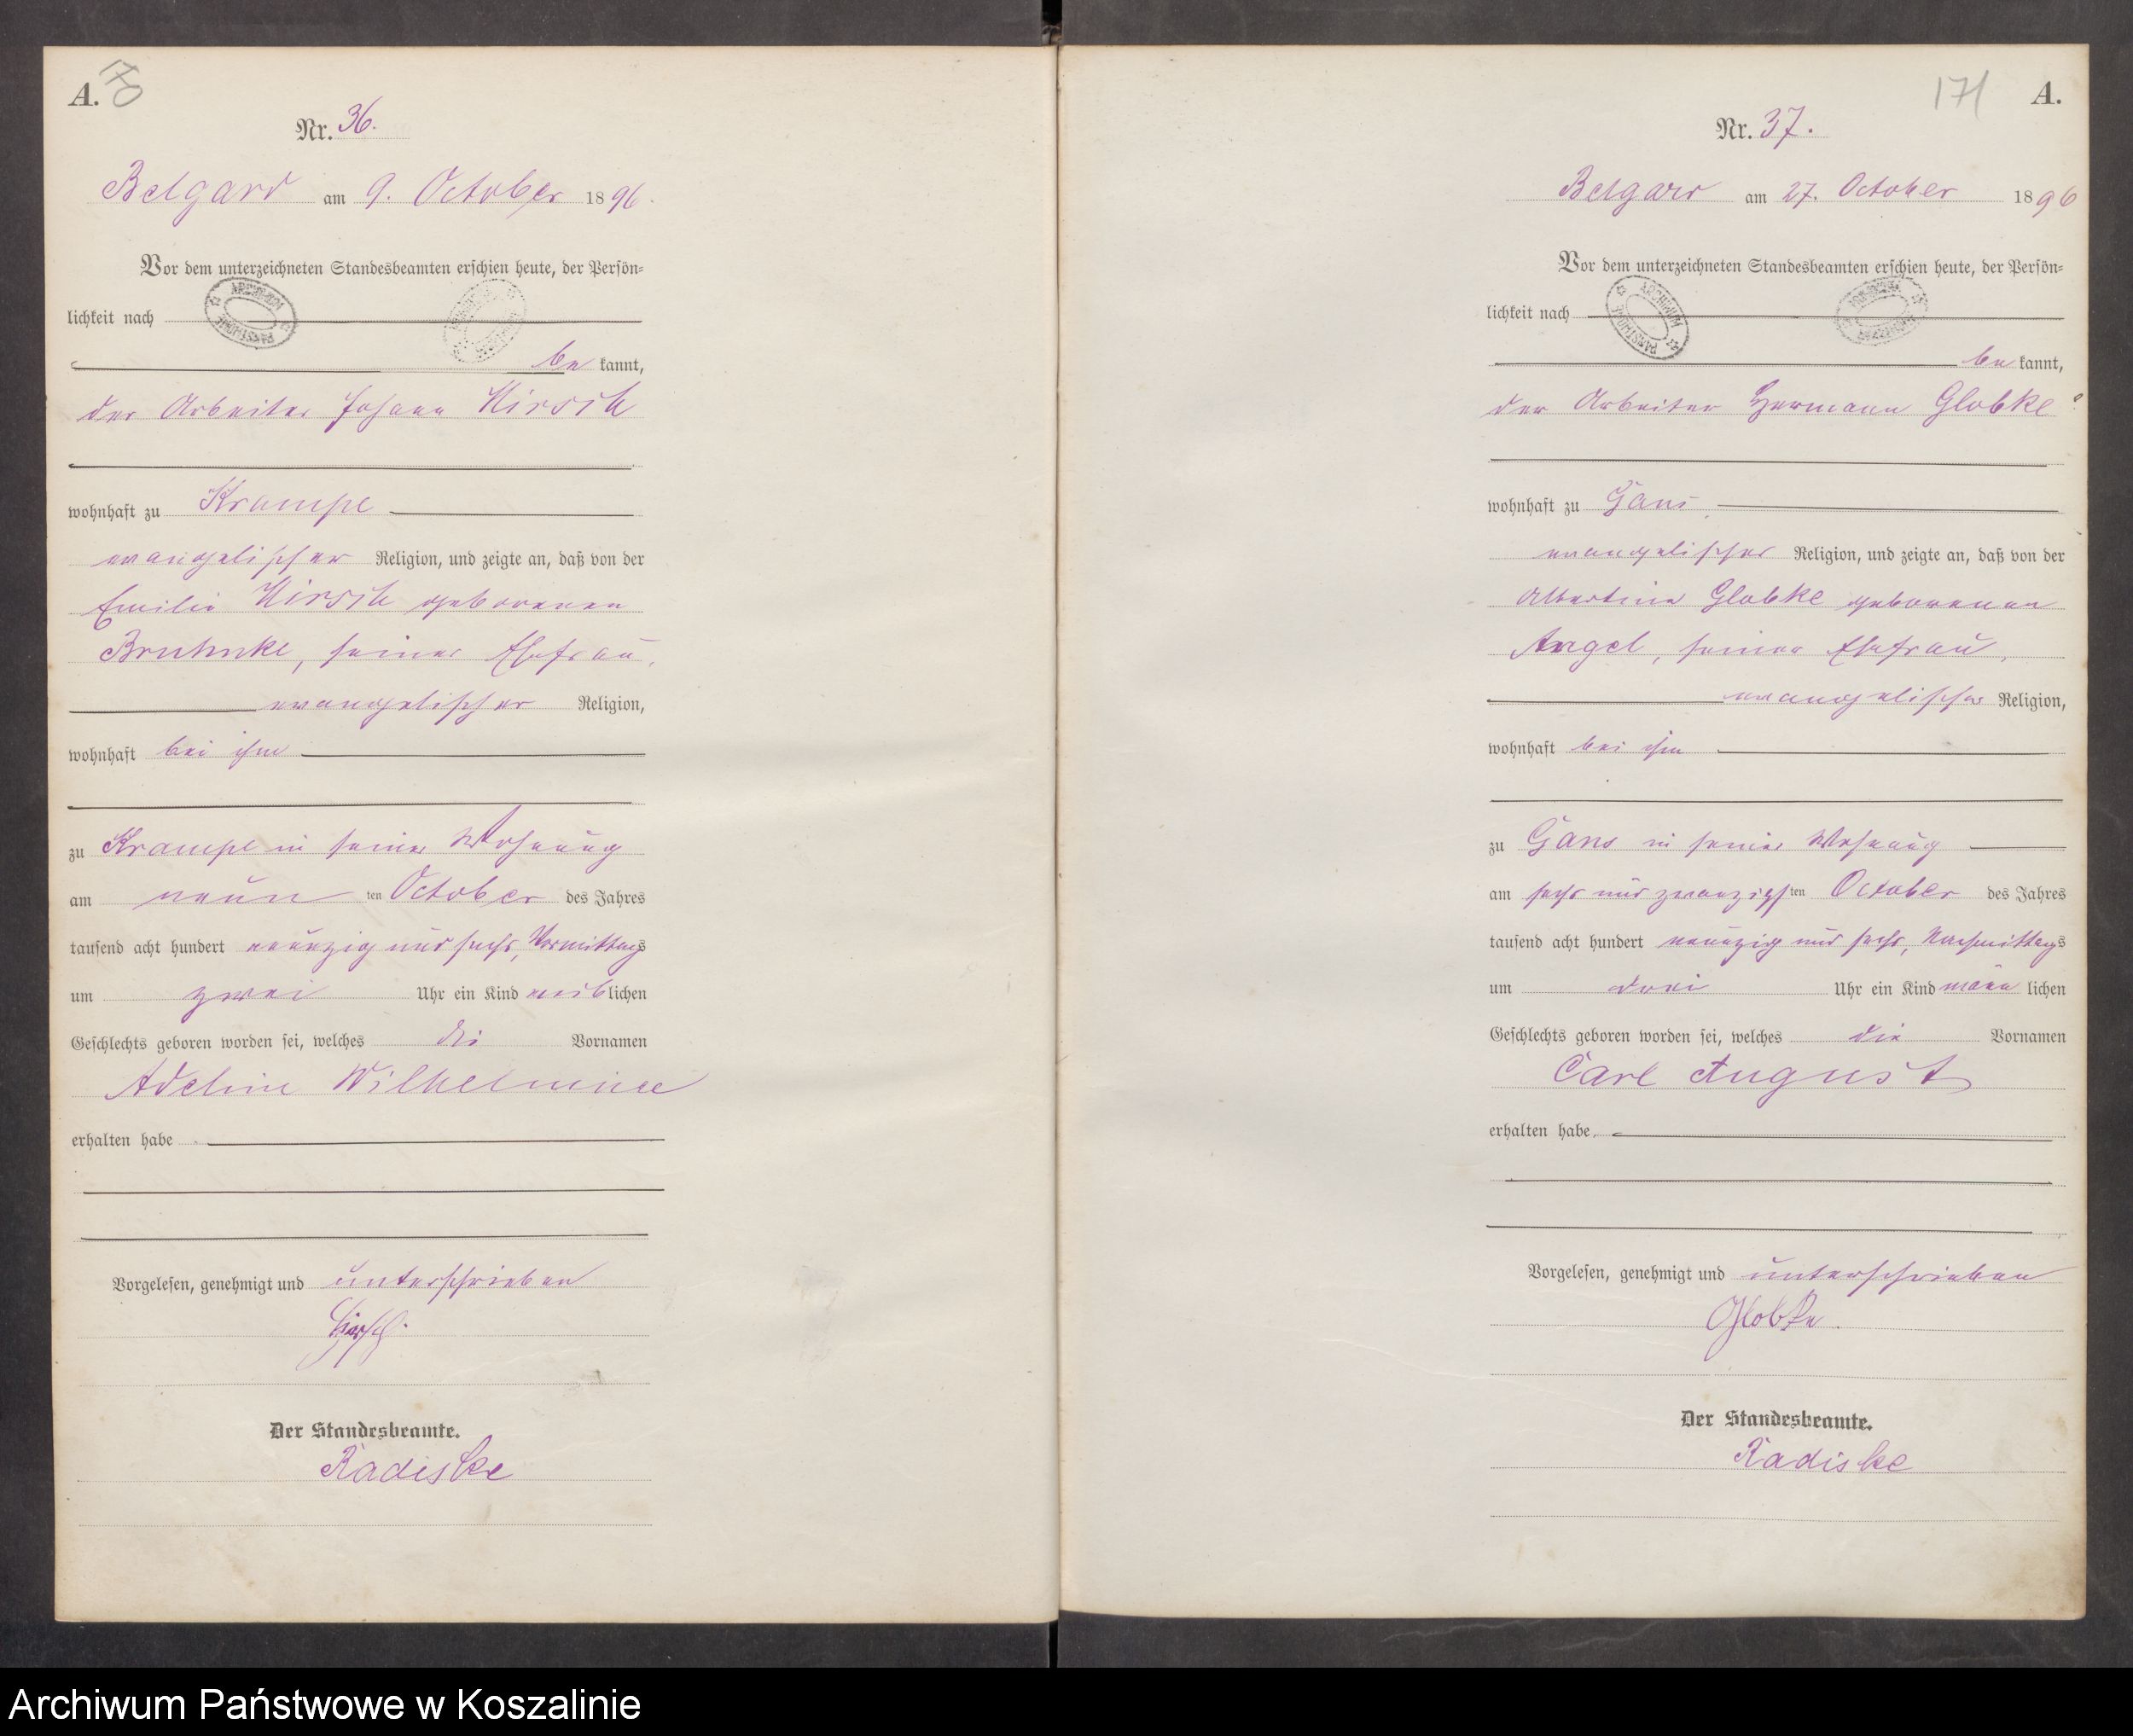 A. 170
Nr. 36.
Belgard am 9. October 1896.
Vor dem unterzeichneten Standesbeamten erschien heute, der Persön-
lichkeit nach
be kannt,
der Arbeiter Johann Hirsch
wohnhaft zu Krampe
evangelischer Religion, und zeigte an, daß von der
Emilie Hirsch geborenen
Bruhnke, seiner Ehefrau,
evangelischer Religion,
wohnhaft bei ihm
zu Krampe in seiner Wohnung
am neun ten October des Jahres
tausend acht hundert neunzig und sechs, Vormittags
um zwei Uhr ein Kind weiblichen
Geschlechts geboren worden sei, welches die Vornamen
Adeline Wilhelmine
erhalten habe
Vorgelesen, genehmigt und unterschrieben
Hirsch.
Der Standesbeamte.
Radiske
171 A.
Nr. 37.
Belgard am 27. October 1896
Vor dem unterzeichneten Standesbeamten erschien heute, der Persön-
lichkeit nach
be kannt,
der Arbeiter Hermann Globke
wohnhaft zu Gans
evangelischer Religion, und zeigte an, daß von der
Albertine Globke geborenen
Angel, seiner Ehefrau,
evangelischer Religion,
wohnhaft bei ihm
zu Gans in seiner Wohnung
am sechs und zwanzigsten October des Jahres
tausend acht hundert neunzig und sechs, Nachmittags
um drei Uhr ein Kind männ lichen
Geschlechts geboren worden sei, welches die Vornamen
Carl August
erhalten habe.
Vorgelesen, genehmigt und unterschrieben
Globke.
Der Standesbeamte.
Radiske
Archiwum Państwowe w Koszalinie